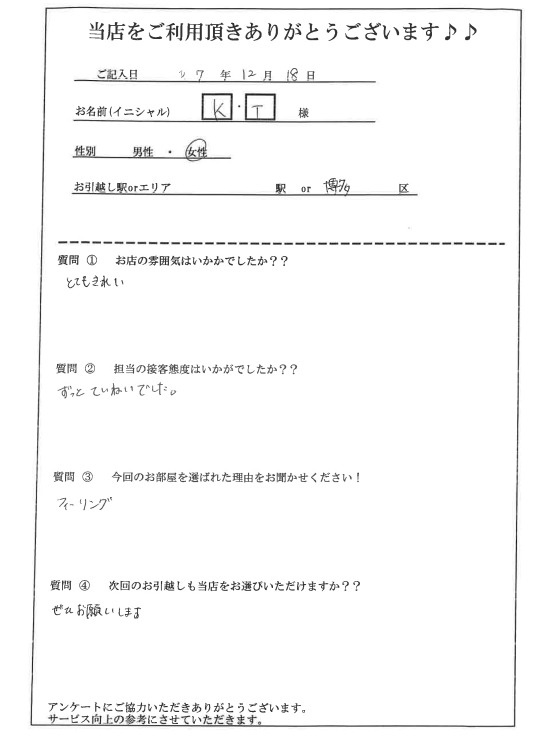 当店をご利用頂きありがとうございます♪♪
ご記入日 7 年 12 月 18 日
お名前(イニシャル) K ・ T 様
性別 男性 ・ 女性
お引越し駅orエリア 駅 or 博多 区
質問 ① お店の雰囲気はいかかでしたか？？
とてもきれい
質問 ② 担当の接客態度はいかがでしたか？？
ずっと ていねいでした。
質問 ③ 今回のお部屋を選ばれた理由をお聞かせください！
フィーリング
質問 ④ 次回のお引越しも当店をお選びいただけますか？？
ぜひお願いします
アンケートにご協力いただきありがとうございます。
サービス向上の参考にさせていただきます。